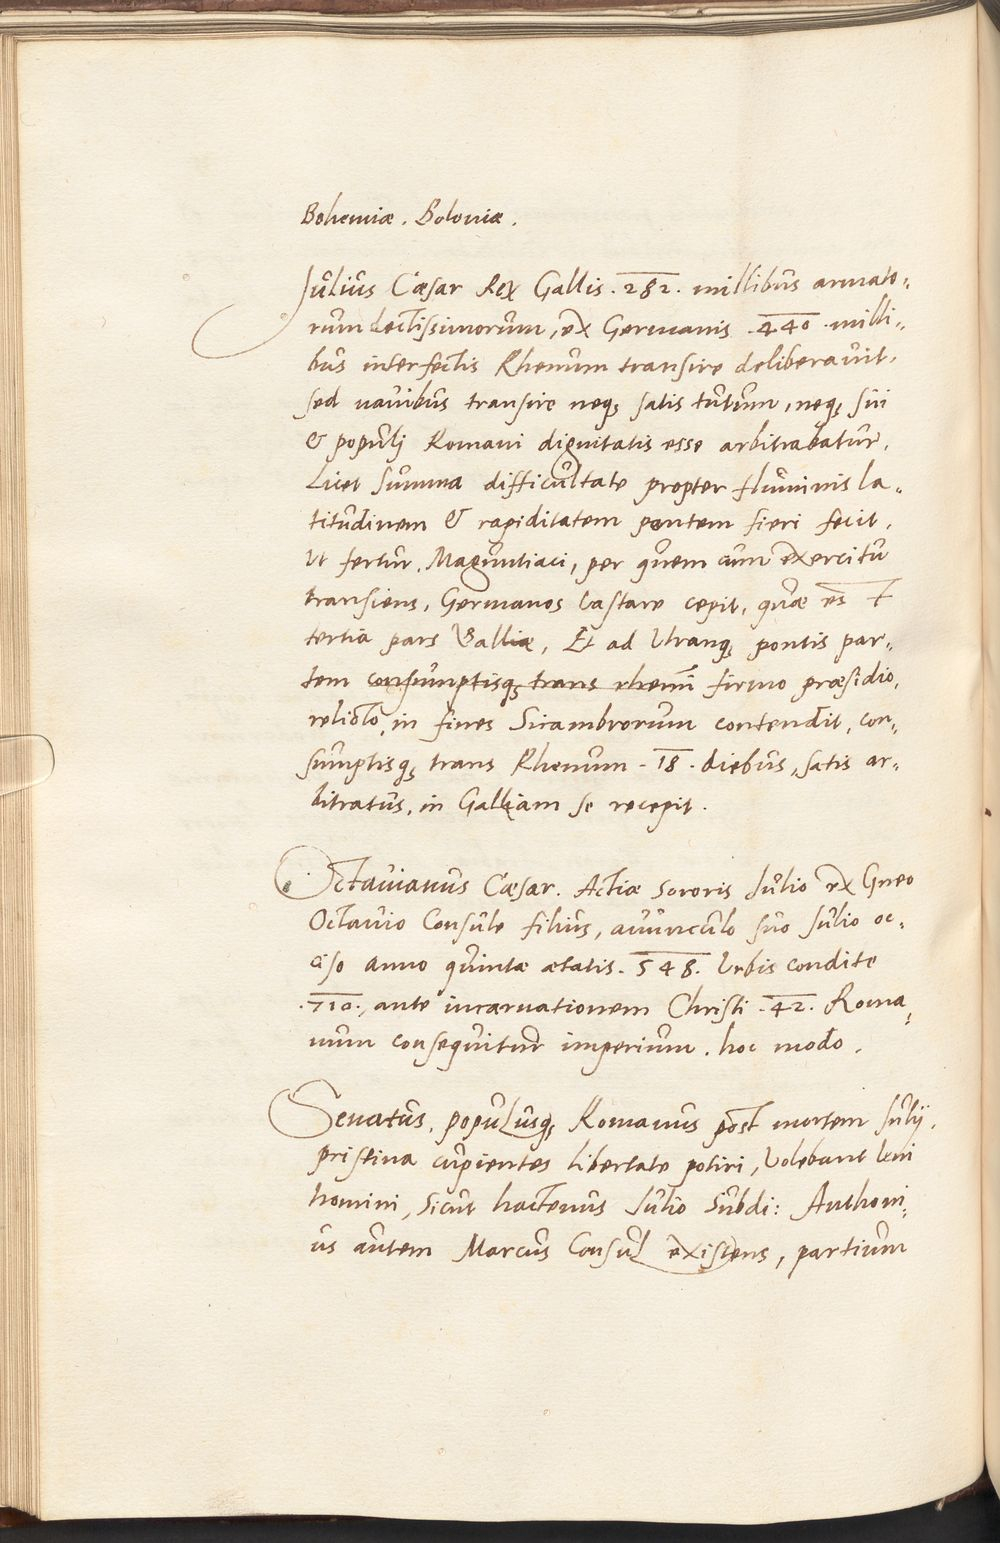 Bohemiæ. Poloniæ.
Julius Cæsar Rex Gallis .282. millibus armato-
rum lectissimorum, ex Germanis .440. milli-
bus interfectis Rhenum transire deliberavit,
sed navibus transire neq; satis tutum, neq; sui
& populj Romani dignitatis esse arbitrabatur,
Licet summa difficultate propter fluminis la-
titudinem & rapiditatem pontem fieri fecit,
ut fertur, Maguntiaci, per quem cum exercitu
transiens, Germanos vastare cepit, quæ est
tertia pars Galliæ, Et ad Utranq; pontis par-
tem consumptisq; trans rheni firmo præsidio,
relicto, in fines Sicambrorum contendit, con-
sumptisq; trans Rhenum .18. diebus, satis ar-
bitratus, in Galliam se recepit.
Octavianus Cæsar. Actiæ sororis Julio ex Gneo
Octavio Consule filius, avunculo suo Julio oc-
ciso anno quintæ ætatis .548. Urbis condite
.710., ante incarnationem Christi .42. Roma-
num consequitur imperium. hoc modo.
Senatus, populusq; Romanus post mortem Julij,
pristina cupientes libertate potiri, Volebant leni
homini, sicut hactenus Julio subdi: Anthoni-
us autem Marcus Consul existens, partium